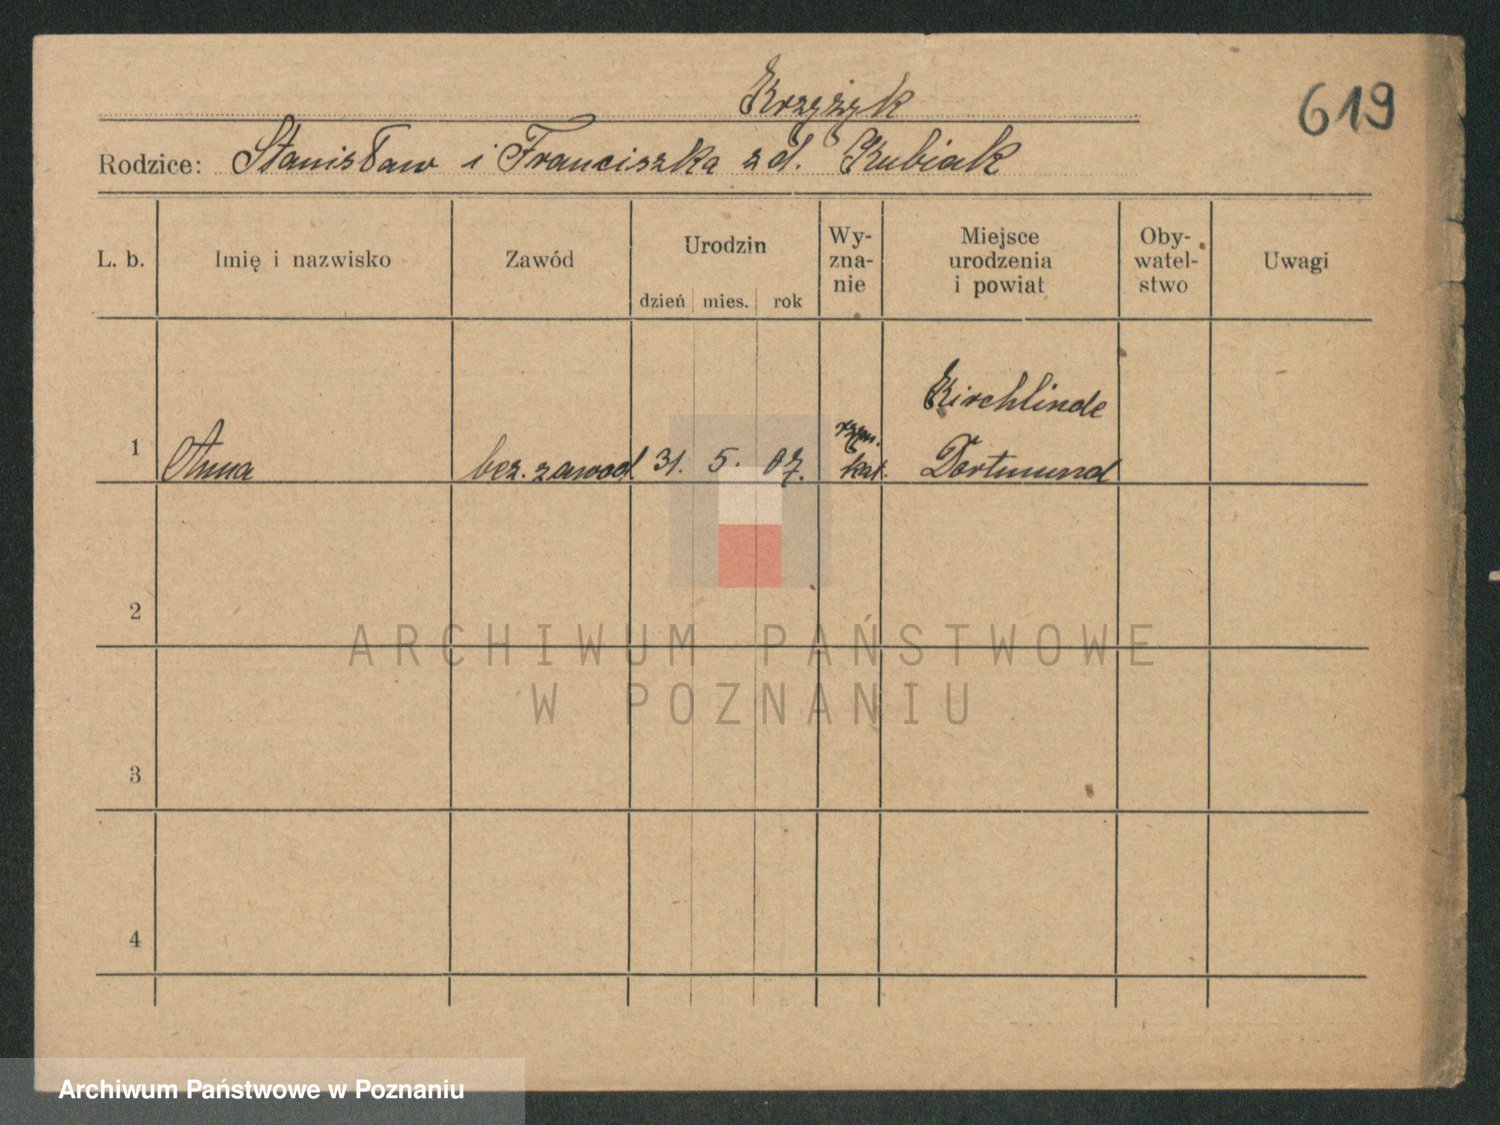 Krzyżyk
619
Rodzice: Stanisław i Franciszka z d. Kubiak
L. b. Imię i nazwisko Zawód Urodzin dzień mies. rok Wy-zna-nie Miejsce urodzenia i powiat Oby-watel-stwo Uwagi
Kirchlinde
1 Anna bez. zawod 31. 5. 07. rzym. kat. Dortmund
2
ARCHIWUM PAŃSTWOWE
W POZNANIU
3
4
Archiwum Państwowe w Poznaniu